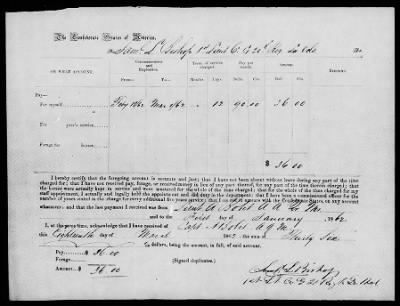 The Confederate States of America,
To Saml L. Bishop 1st Lieut Co G 20th Reg
Dr.
ON WHAT ACCOUNT.
Commencement and Expiration.
Term of service charged.
Pay per month.
Amount.
From
To
Months.
Days.
Dols. Cts.
Pay—
For myself 12 90 00 36 00
For year's service
Forage for horses
$ 36.00
I hereby certify that the foregoing account is accurate and just; that I have not been absent without leave during any part of the time
charged for; that I have not received pay, forage, or received money in lieu of any part thereof, for any part of the time therein charged; that
the horses were actually kept in service and were mustered for the whole of the time charged; that for the whole of the time charged for my staff
appointment, I actually and legally held the appointment and did duty in the department; that I have been a commissioned officer for the
number of years stated in the charge for every additional five years service; that I am not in arrears with the Confederate States, on any account
whatsoever; and that the last payment I received was from Lieut A Bohet A A Q M
and to the First day of January 1862
I, at the same time, acknowledge that I have received of Capt A Bohet A Q M
this Eighteenth day of March 1862 Thirty Six
dollars, being the amount, in full, of said account.
Pay $ 36 00
Forage
Amount $ 36 00
(Signed duplicates.)
Saml L Bishop
1st Lt Co G